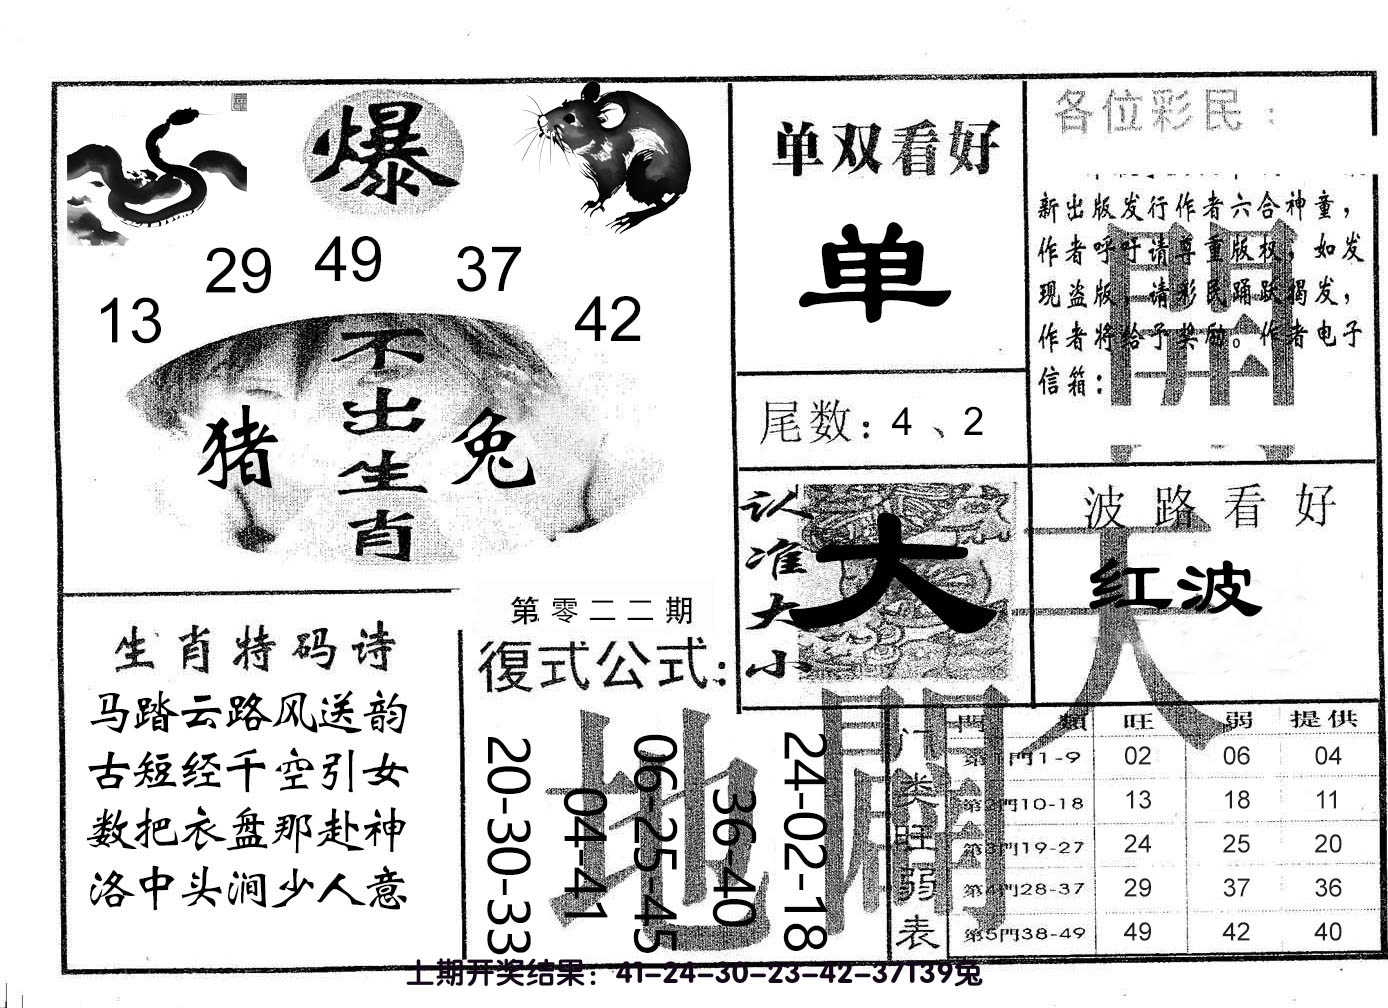 爆
29 49 37
13 42
不出生肖
猪 兔
单双看好
单
尾数：4、2
各位彩民：
新出版发行作者六合神童，
作者呼吁请尊重版权，如发
现盗版，请彩民踊跃揭发，
作者将给予奖励。作者电子
信箱：
開
认准大小
大
波路看好
红波
天
生肖特码诗
马踏云路风送韵
古短经千空引女
数把衣盘那赴神
洛中头涧少人意
第零二二期
復式公式：
20-30-33
04-41
06-25-45
36-40
24-02-18
地
門类旺弱表
門類 旺 弱 提供
第1門1-9 02 06 04
第2門10-18 13 18 11
第3門19-27 24 25 20
第4門28-37 29 37 36
第5門38-49 49 42 40
上期开奖结果：41-24-30-23-42-37T39兔